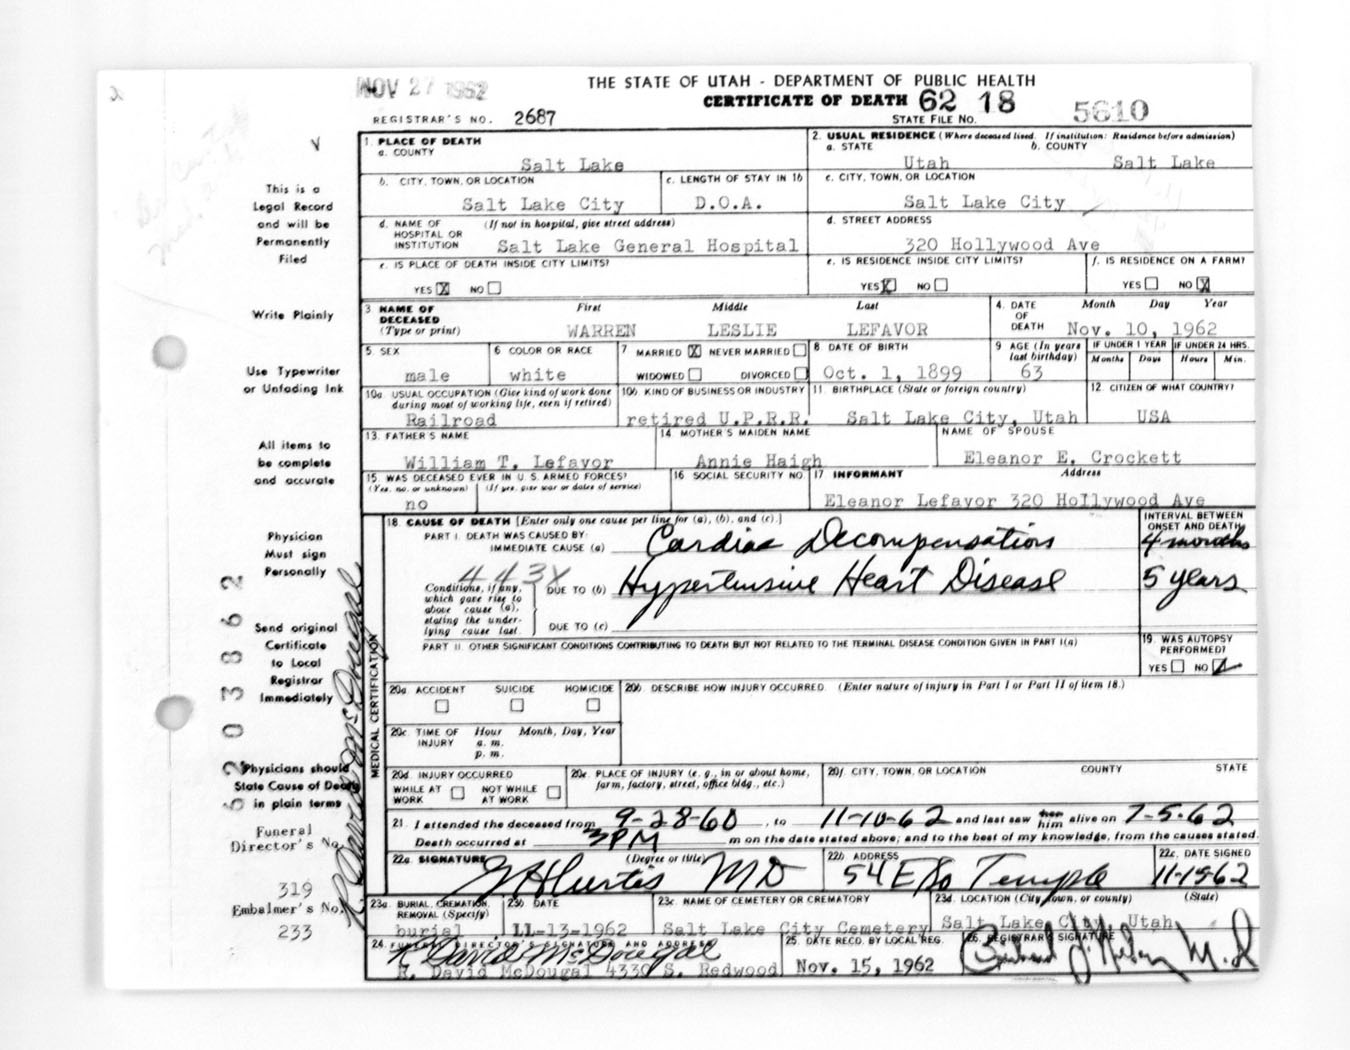 NOV 27 1962
THE STATE OF UTAH - DEPARTMENT OF PUBLIC HEALTH
CERTIFICATE OF DEATH 62 18 5610
REGISTRAR'S NO. 2687
STATE FILE NO.
This is a
Legal Record
and will be
Permanently
Filed
Write Plainly
Use Typewriter
or Unfading Ink
All items to
be complete
and accurate
Physician
Must sign
Personally
Send original
Certificate
to Local
Registrar
Immediately
Physicians should
State Cause of Death
in plain terms
Funeral
Director's No.
319
Embalmer's No.
233
62 03862
R David McDougal
1. PLACE OF DEATH
a. COUNTY
Salt Lake
2. USUAL RESIDENCE (Where deceased lived. If institution: Residence before admission)
a. STATE b. COUNTY
Utah Salt Lake
b. CITY, TOWN, OR LOCATION
Salt Lake City
c. LENGTH OF STAY IN 1b
D.O.A.
c. CITY, TOWN, OR LOCATION
Salt Lake City
d. NAME OF (If not in hospital, give street address)
HOSPITAL OR
INSTITUTION Salt Lake General Hospital
d. STREET ADDRESS
320 Hollywood Ave
e. IS PLACE OF DEATH INSIDE CITY LIMITS?
YES X NO
e. IS RESIDENCE INSIDE CITY LIMITS?
YES X NO
f. IS RESIDENCE ON A FARM?
YES NO X
3 NAME OF First Middle Last
DECEASED
(Type or print) WARREN LESLIE LEFAVOR
4. DATE Month Day Year
OF
DEATH Nov. 10, 1962
5. SEX
male
6 COLOR OR RACE
white
7 MARRIED X NEVER MARRIED
WIDOWED DIVORCED
8 DATE OF BIRTH
Oct. 1, 1899
9 AGE (In years
last birthday)
63
IF UNDER 1 YEAR IF UNDER 24 HRS.
Months Days Hours Min.
10a. USUAL OCCUPATION (Give kind of work done
during most of working life, even if retired)
Railroad
10b. KIND OF BUSINESS OR INDUSTRY
retired U.P.R.R.
11. BIRTHPLACE (State or foreign country)
Salt Lake City, Utah
12. CITIZEN OF WHAT COUNTRY?
USA
13. FATHER'S NAME
William T. Lefavor
14 MOTHER'S MAIDEN NAME
Annie Haigh
NAME OF SPOUSE
Eleanor E. Crockett
15. WAS DECEASED EVER IN U.S. ARMED FORCES?
(Yes, no, or unknown) (If yes, give war or dates of service)
no
16 SOCIAL SECURITY NO.
17 INFORMANT Address
Eleanor Lefavor 320 Hollywood Ave
MEDICAL CERTIFICATION
18. CAUSE OF DEATH [Enter only one cause per line for (a), (b), and (c).]
PART I. DEATH WAS CAUSED BY:
IMMEDIATE CAUSE (a) Cardiac Decompensation
INTERVAL BETWEEN
ONSET AND DEATH
4 months
443X
Conditions, if any,
which gave rise to
above cause (a),
stating the under-
lying cause last.
DUE TO (b) Hypertensive Heart Disease
5 years
DUE TO (c)
PART II. OTHER SIGNIFICANT CONDITIONS CONTRIBUTING TO DEATH BUT NOT RELATED TO THE TERMINAL DISEASE CONDITION GIVEN IN PART I(a)
19. WAS AUTOPSY
PERFORMED?
YES NO
20a. ACCIDENT SUICIDE HOMICIDE
20b. DESCRIBE HOW INJURY OCCURRED. (Enter nature of injury in Part I or Part II of item 18.)
20c. TIME OF Hour Month, Day, Year
INJURY a. m.
p. m.
20d. INJURY OCCURRED
WHILE AT NOT WHILE
WORK AT WORK
20e. PLACE OF INJURY (e. g., in or about home,
farm, factory, street, office bldg., etc.)
20f. CITY, TOWN, OR LOCATION COUNTY STATE
21. I attended the deceased from 9-28-60, to 11-10-62 and last saw her him alive on 7-5-62
Death occurred at 3PM m on the date stated above; and to the best of my knowledge, from the causes stated.
22a. SIGNATURE (Degree or title)
Curtis MD
22b. ADDRESS
54 E So Temple
22c. DATE SIGNED
11-15-62
23a. BURIAL, CREMATION,
REMOVAL (Specify)
burial
23b DATE
11-13-1962
23c. NAME OF CEMETERY OR CREMATORY
Salt Lake City Cemetery
23d. LOCATION (City, town, or county) (State)
Salt Lake City, Utah
24. FUNERAL DIRECTOR'S SIGNATURE AND ADDRESS
R David McDougal
R. David McDougal 4330 S. Redwood
25. DATE RECD. BY LOCAL REG.
Nov. 15, 1962
26. REGISTRAR'S SIGNATURE
M.D